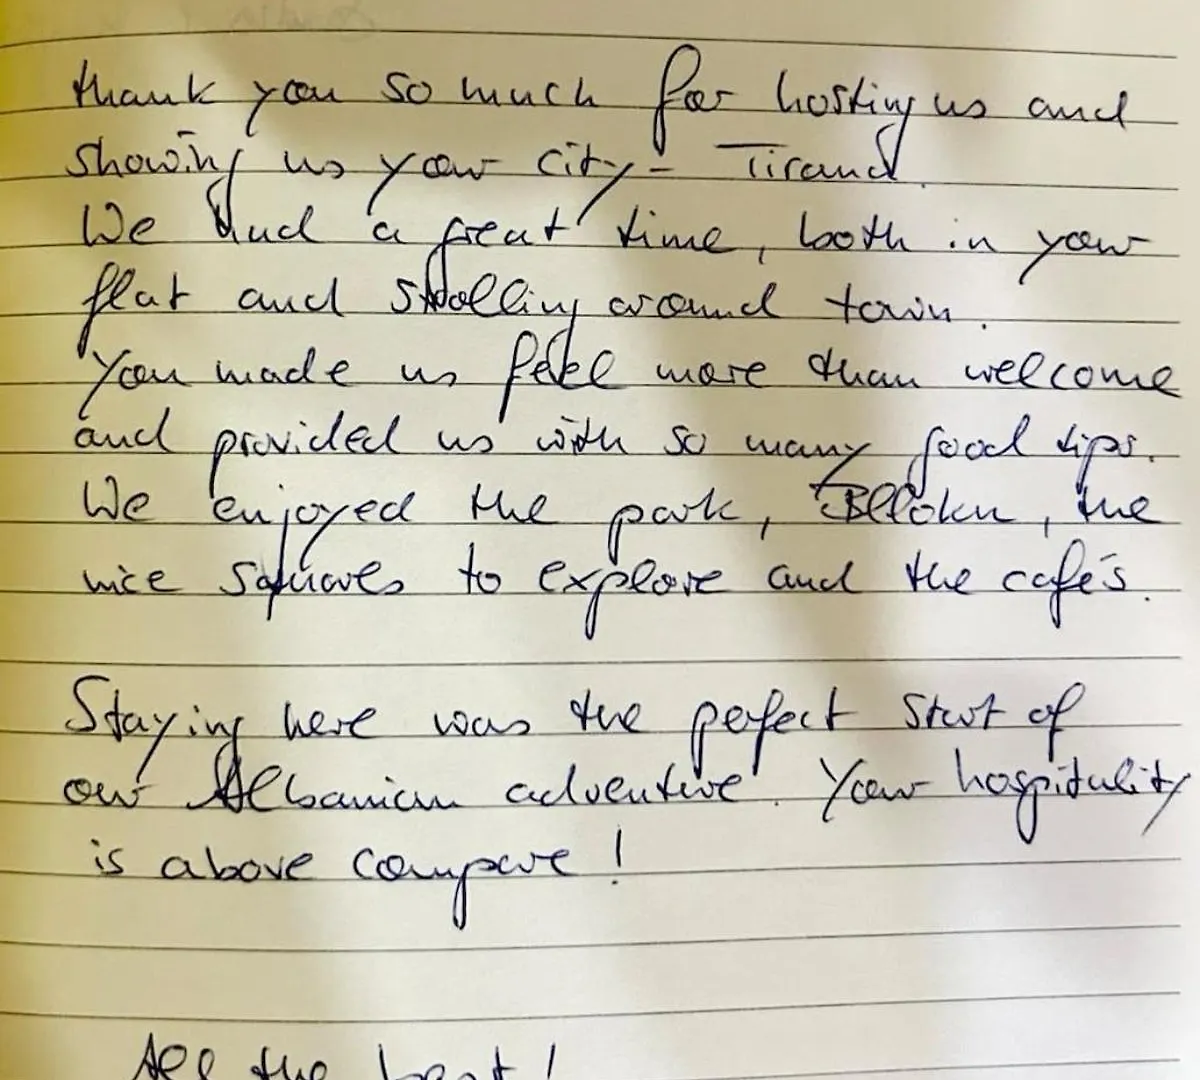 thank you so much for hosting us and
showing us your city - Tirana.
We had a great time, both in your
flat and strolling around town.
You made us feel more than welcome
and provided us with so many good tips.
We enjoyed the park, Blloku, the
nice squares to explore and the cafés.
Staying here was the perfect start of
our Albanian adventure. Your hospitality
is above compare!
All the best!